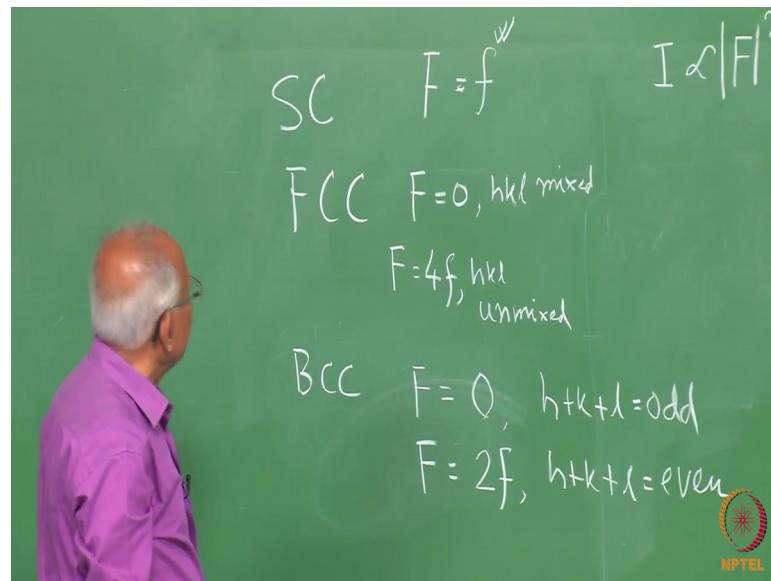 SC F = f
I ∝ |F|²
FCC F = 0, hkl mixed
F = 4f, hkl
unmixed
BCC F = 0, h+k+l = odd
F = 2f, h+k+l = even
NPTEL